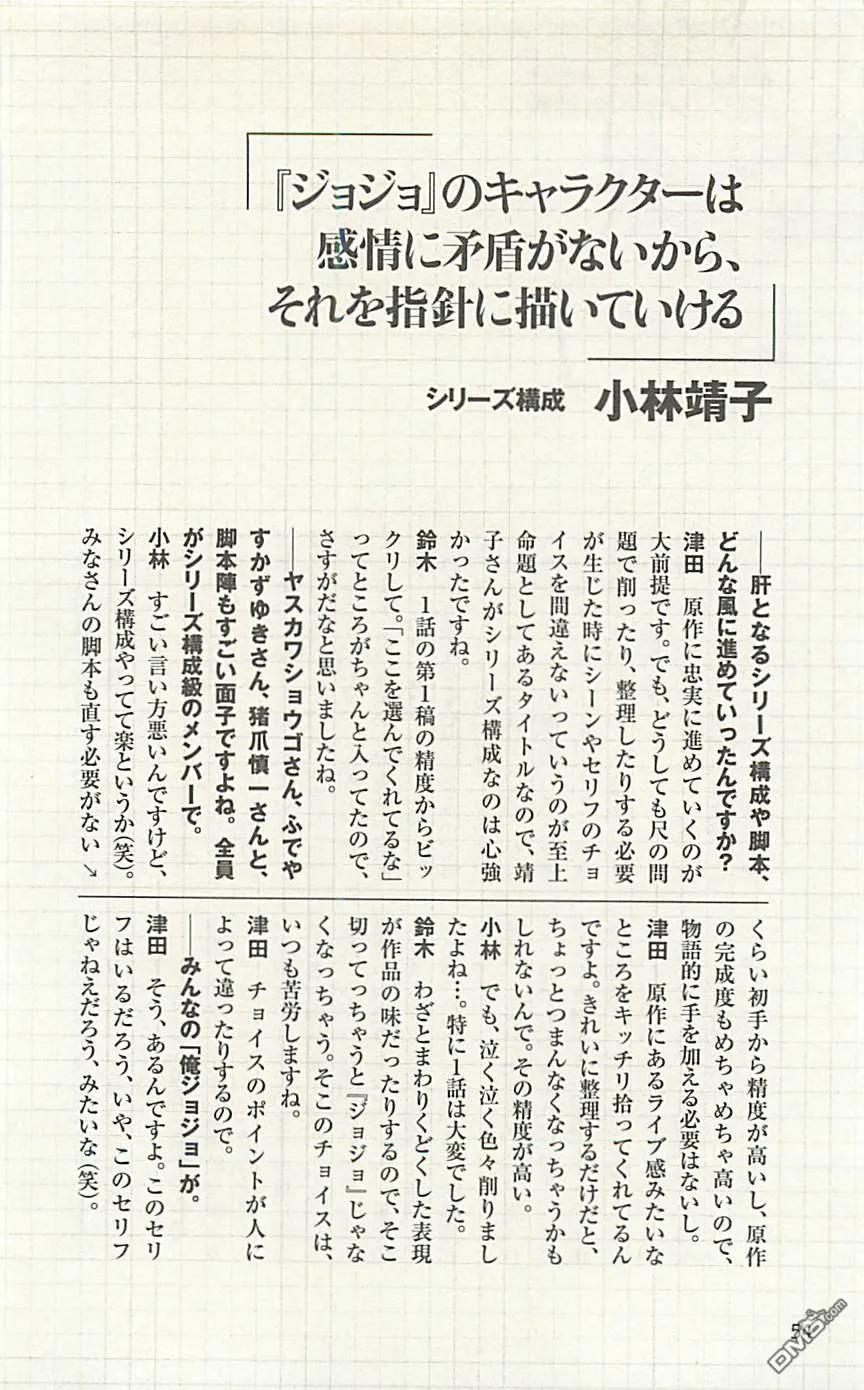 『ジョジョ』のキャラクターは
感情に矛盾がないから、
それを指針に描いていける
シリーズ構成 小林靖子
――肝となるシリーズ構成や脚本、
どんな風に進めていったんですか？
津田 原作に忠実に進めていくのが
大前提です。でも、どうしても尺の問
題で削ったり、整理したりする必要
が生じた時にシーンやセリフのチョ
イスを間違えないっていうのが至上
命題としてあるタイトルなので、靖
子さんがシリーズ構成なのは心強
かったですね。
鈴木 1話の第1稿の精度からビッ
クリして。「ここを選んでくれてるな」
ってところがちゃんと入ってたので、
さすがだなと思いましたね。
――ヤスカワショウゴさん、ふでや
すかずゆきさん、猪爪慎一さんと、
脚本陣もすごい面子ですよね。全員
がシリーズ構成級のメンバーで。
小林 すごい言い方悪いんですけど、
シリーズ構成やってて楽というか(笑)。
みなさんの脚本も直す必要がない↘
くらい初手から精度が高いし、原作
の完成度もめちゃめちゃ高いので、
物語的に手を加える必要はないし。
津田 原作にあるライブ感みたいな
ところをキッチリ拾ってくれてるん
ですよ。きれいに整理するだけだと、
ちょっとつまんなくなっちゃうかも
しれないんで。その精度が高い。
小林 でも、泣く泣く色々削りまし
たよね…。特に1話は大変でした。
鈴木 わざとまわりくどくした表現
が作品の味だったりするので、そこ
切ってっちゃうと『ジョジョ』じゃな
くなっちゃう。そこのチョイスは、
いつも苦労しますね。
津田 チョイスのポイントが人に
よって違ったりするので。
――みんなの「俺ジョジョ」が。
津田 そう、あるんですよ。このセリ
フはいるだろう、いや、このセリフ
じゃねえだろう、みたいな(笑)。
DM5.com